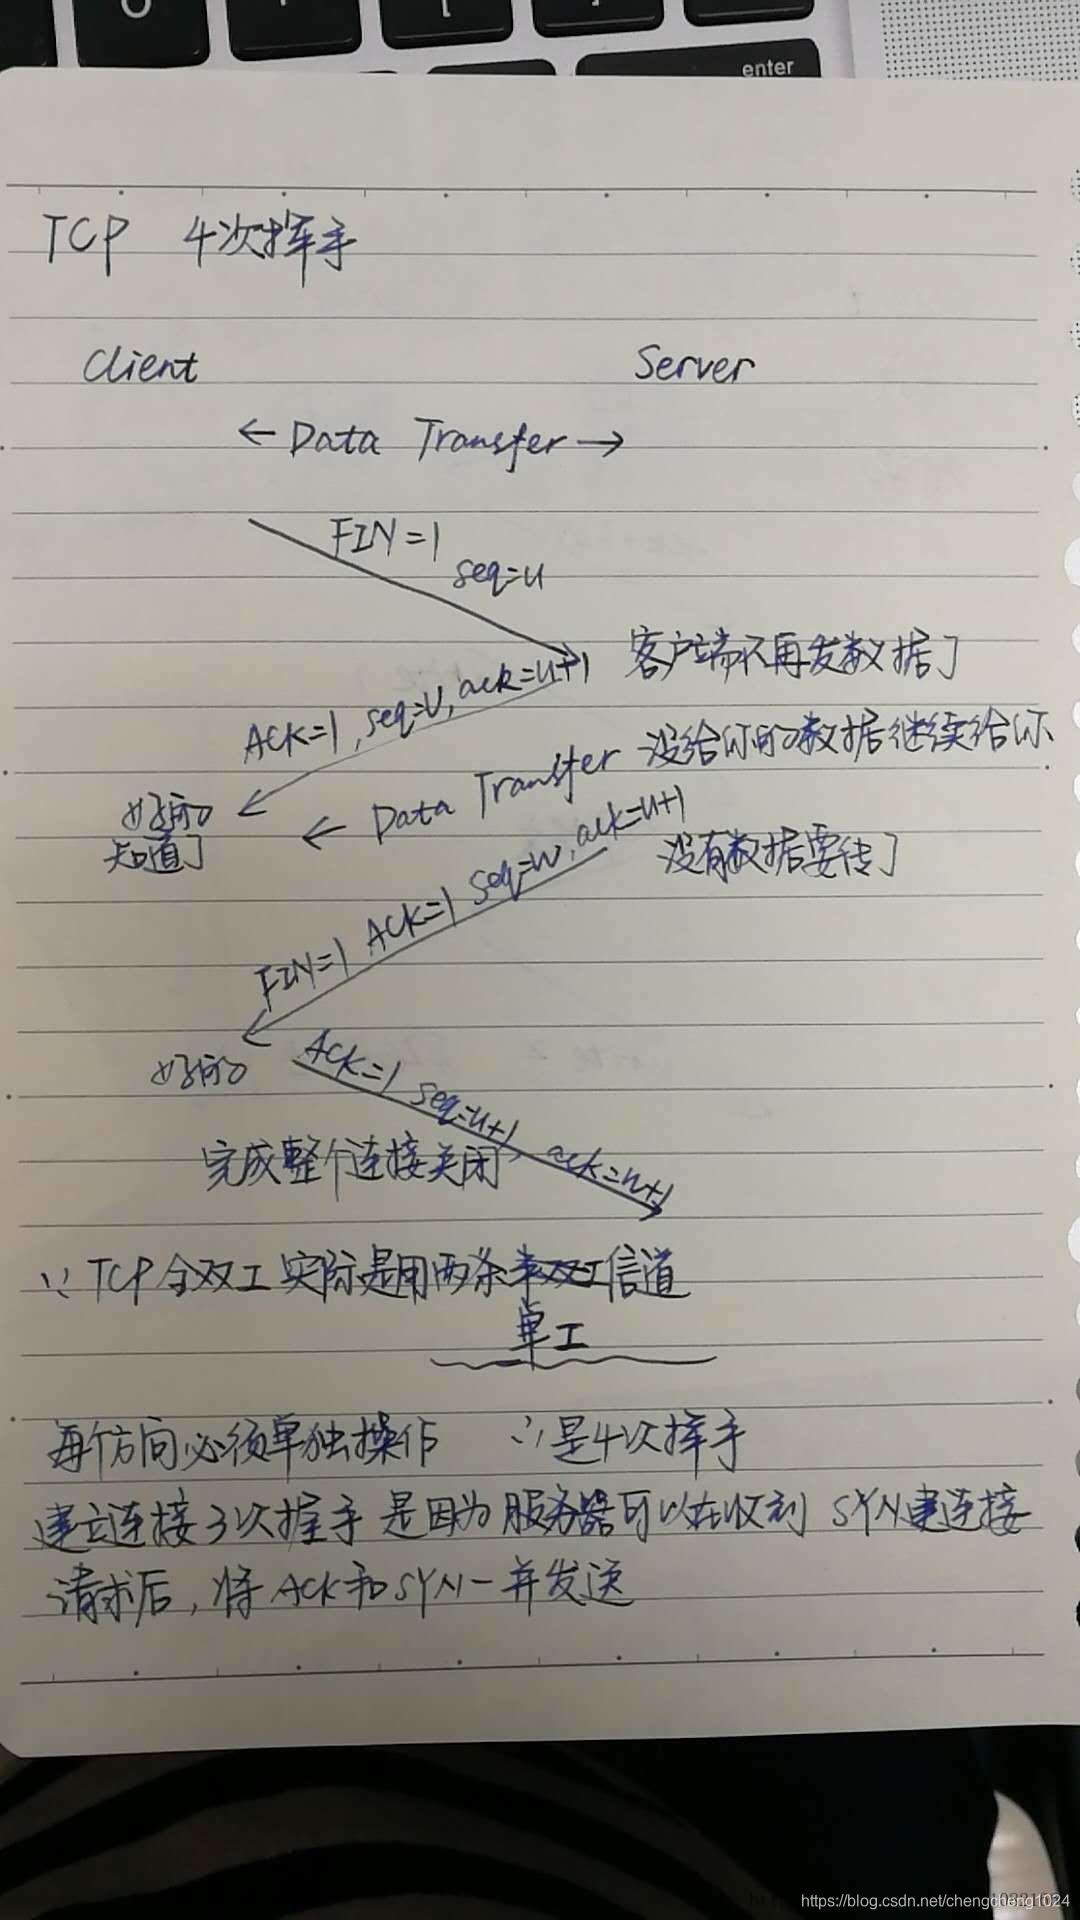 enter
TCP 4次挥手
Client Server
← Data Transfer →
FIN=1
seq=u
客户端不再发数据了
ACK=1, seq=v, ack=u+1
没给你的数据继续给你
← Data Transfer
好的
知道了
没有数据要传了
FIN=1 ACK=1 seq=w, ack=u+1
好的
ACK=1 seq=u+1 ack=w+1
完成整个连接关闭
∵ TCP全双工实际是用两条信道
单工
每个方向必须单独操作 ∴是4次挥手
建立连接3次握手是因为服务器可以在收到 SYN建连接
请求后,将ACK和SYN一并发送
https://blog.csdn.net/chengcheng1024